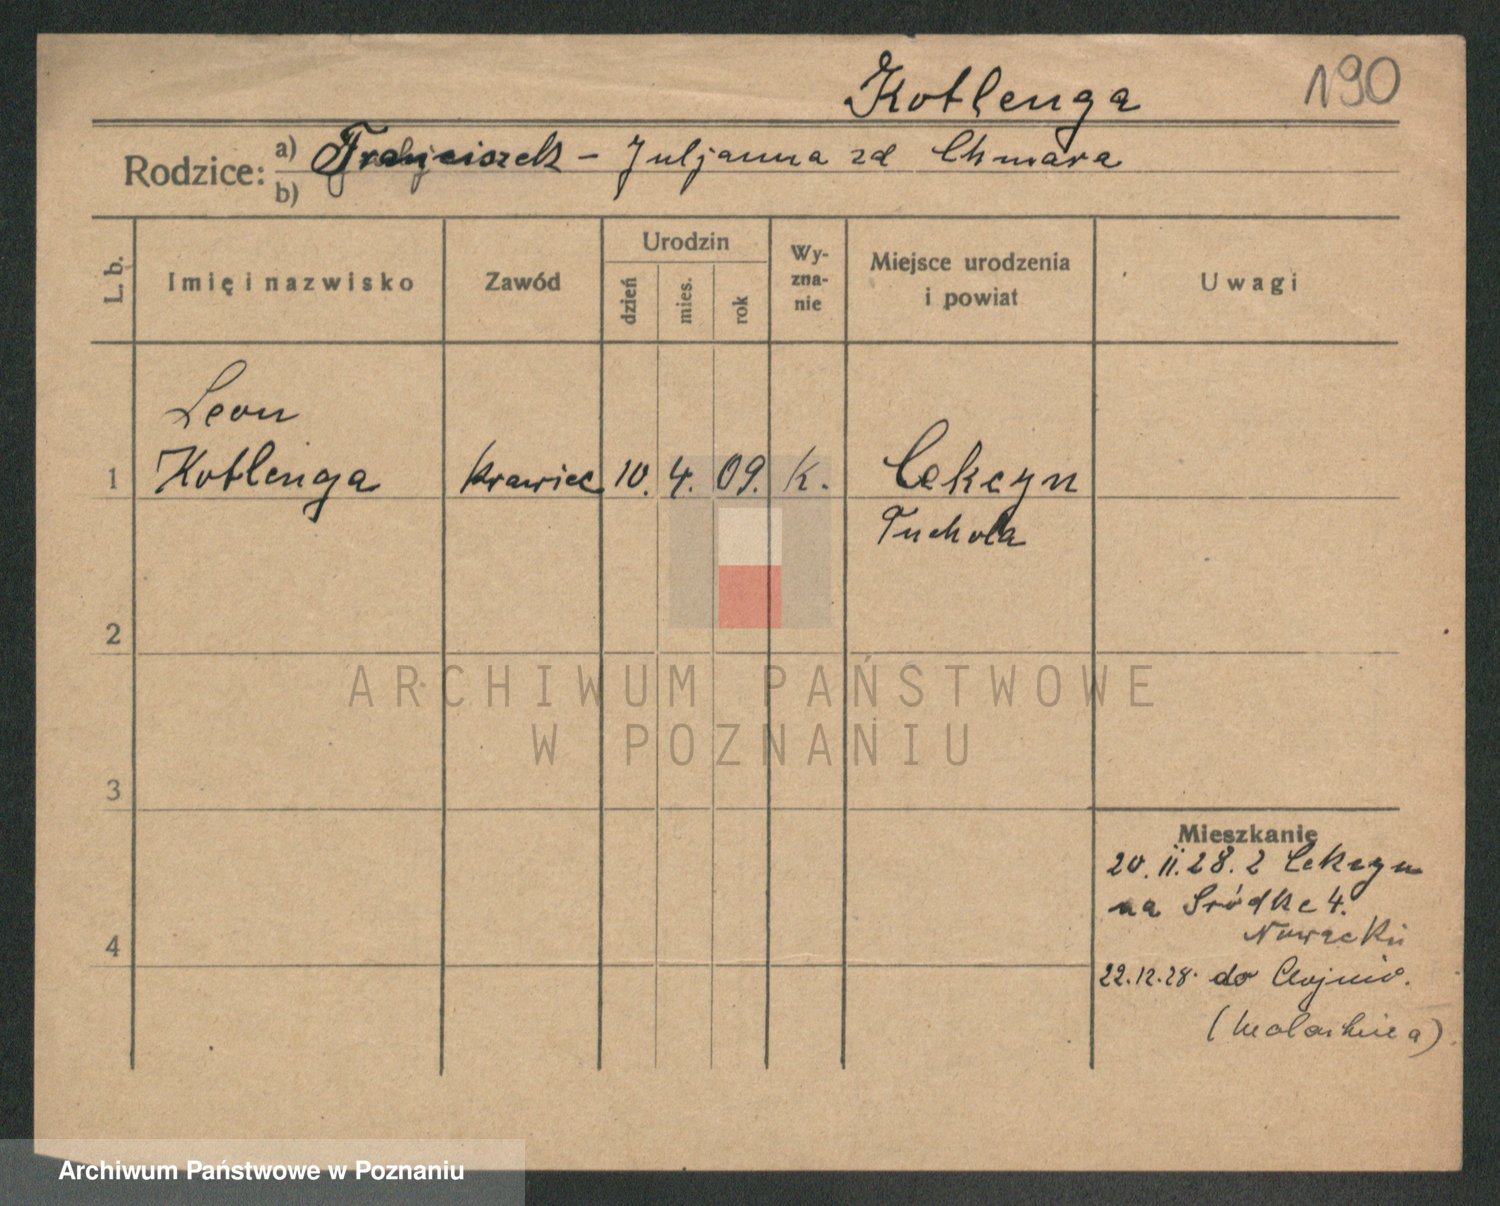 Kotlenga
190
Rodzice: a) Franciszek – Juljanna zd Chmara
b)
L. b. Imię i nazwisko Zawód Urodzin dzień mies. rok Wy-zna-nie Miejsce urodzenia i powiat Uwagi
Leon
1 Kotlenga krawiec 10. 4. 09. k. Cekcyn
Tuchola
2
ARCHIWUM PAŃSTWOWE
W POZNANIU
3
Mieszkanie
20.II.28. z Cekcyn
na Śródke 4.
4 Nowacki
22.12.28. do
Archiwum Państwowe w Poznaniu